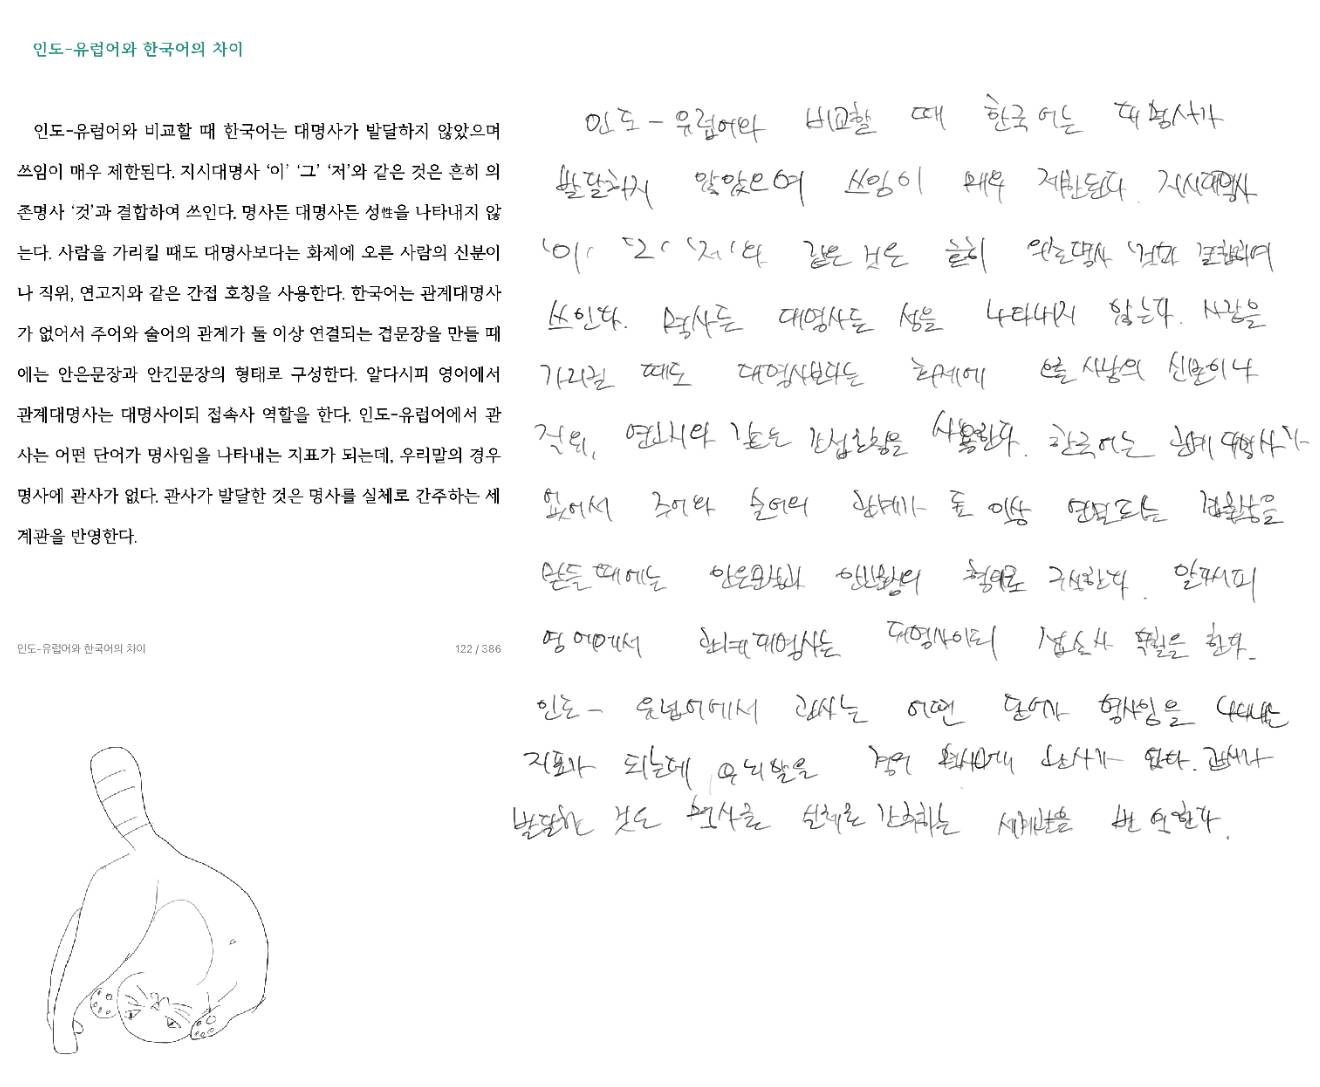 인도-유럽어와 한국어의 차이
인도-유럽어와 비교할 때 한국어는 대명사가 발달하지 않았으며
쓰임이 매우 제한된다. 지시대명사 ‘이’ ‘그’ ‘저’와 같은 것은 흔히 의
존명사 ‘것’과 결합하여 쓰인다. 명사든 대명사든 성性을 나타내지 않
는다. 사람을 가리킬 때도 대명사보다는 화제에 오른 사람의 신분이
나 직위, 연고지와 같은 간접 호칭을 사용한다. 한국어는 관계대명사
가 없어서 주어와 술어의 관계가 둘 이상 연결되는 겹문장을 만들 때
에는 안은문장과 안긴문장의 형태로 구성한다. 알다시피 영어에서
관계대명사는 대명사이되 접속사 역할을 한다. 인도-유럽어에서 관
사는 어떤 단어가 명사임을 나타내는 지표가 되는데, 우리말의 경우
명사에 관사가 없다. 관사가 발달한 것은 명사를 실체로 간주하는 세
계관을 반영한다.
인도-유럽어와 한국어의 차이
122 / 386
인도-유럽어와 비교할 때 한국어는 대명사가
발달하지 않았으며 쓰임이 매우 제한된다. 지시대명사
‘이’ ‘그’ ‘저’와 같은 것은 흔히 의존명사 ‘것’과 결합하여
쓰인다. 명사든 대명사든 성을 나타내지 않는다. 사람을
가리킬 때도 대명사보다는 화제에 오른 사람의 신분이나
직위, 연고지와 같은 간접호칭을 사용한다. 한국어는 관계대명사가
없어서 주어와 술어의 관계가 둘 이상 연결되는 겹문장을
만들 때에는 안은문장과 안긴문장의 형태로 구성한다. 알다시피
영어에서 관계대명사는 대명사이되 접속사 역할을 한다.
인도-유럽어에서 관사는 어떤 단어가 명사임을 나타내는
지표가 되는데 우리말을 경우 명사에 관사가 없다. 관사가
발달한 것은 명사를 실체로 간주하는 세계관을 반영한다.